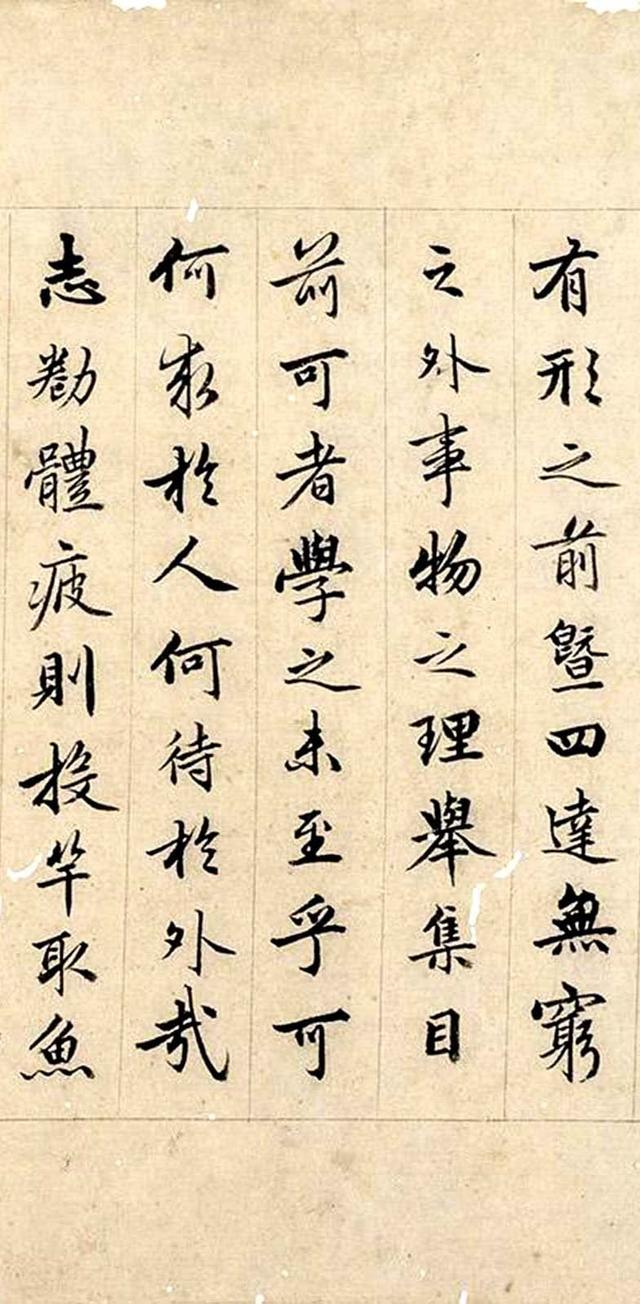 有形之前暨四達無窮
之外事物之理舉集目
前可者學之未至乎可
何求於人何待於外哉
志勌體疲則投竿取魚